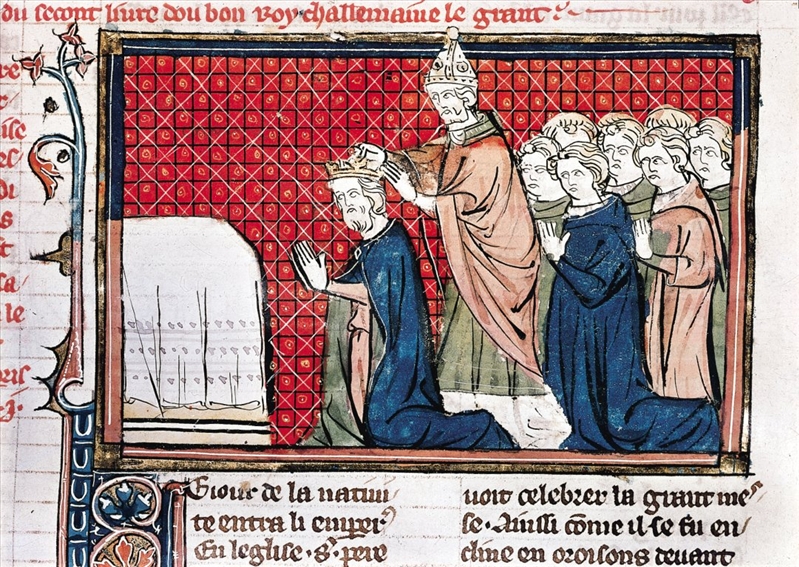 du secont liure dou bon Roy challemaine le grant
re
ise
di
s
t
sa
le
ris
Giour de la natiui
te entra li emper
En leglise · s · pere
uoit celebrer la grant mes
se · Ainssi cõme il se fu en
cline en oroisons deuant